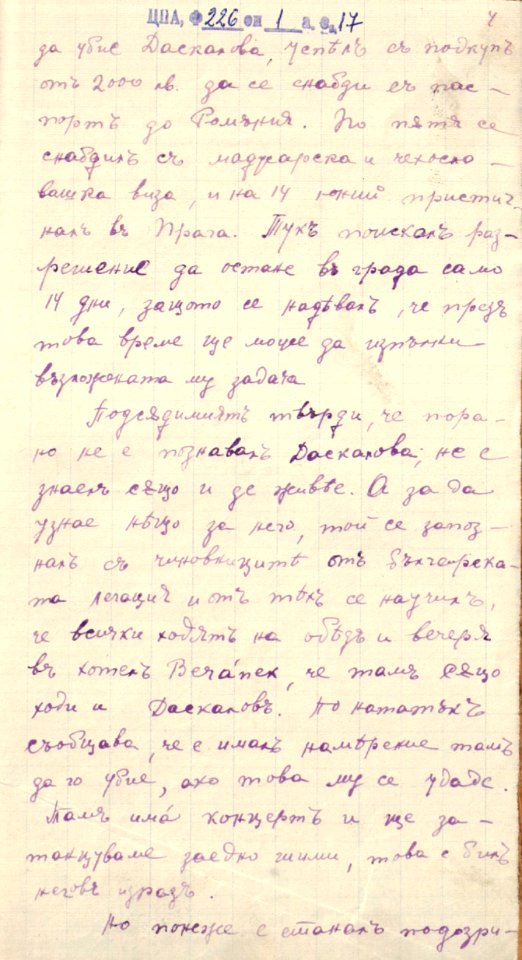 ЦПА, ф 226 оп 1 а. е. 17 4
да убие Даскалова, успѣлъ съ подкупъ
отъ 2000 лв. да се снабди съ пас-
портъ до Ромъния. По пѫтя се
снабдилъ съ маджарска и чехосло-
вашка виза, и на 14 юний пристиг-
налъ въ Прага. Тукъ поискалъ раз-
решение да остане въ града само
14 дни, защото се надѣвалъ, че презъ
това време ще може да изпълни
възложената му задача
Подсѫдимиятъ твърди, че пора-
но не е познавалъ Даскалова, не е
знаелъ сѫщо и де живѣе. А за да
узнае нѣщо за него, той се запоз-
налъ съ чиновницитѣ отъ българска-
та легация и отъ тѣхъ се научилъ,
че всички ходятъ на обѣдъ и вечеря
въ хотелъ Веча́нек, че тамъ сѫщо
ходи и Даскаловъ. По нататъкъ
съобщава, че е ималъ намѣрение тамъ
да го убие, ако това му се удаде.
Тамъ има́ концертъ и ще за-
танцуваме заедно шими, това е билъ
неговъ изразъ.
Но понеже е станалъ подозри-